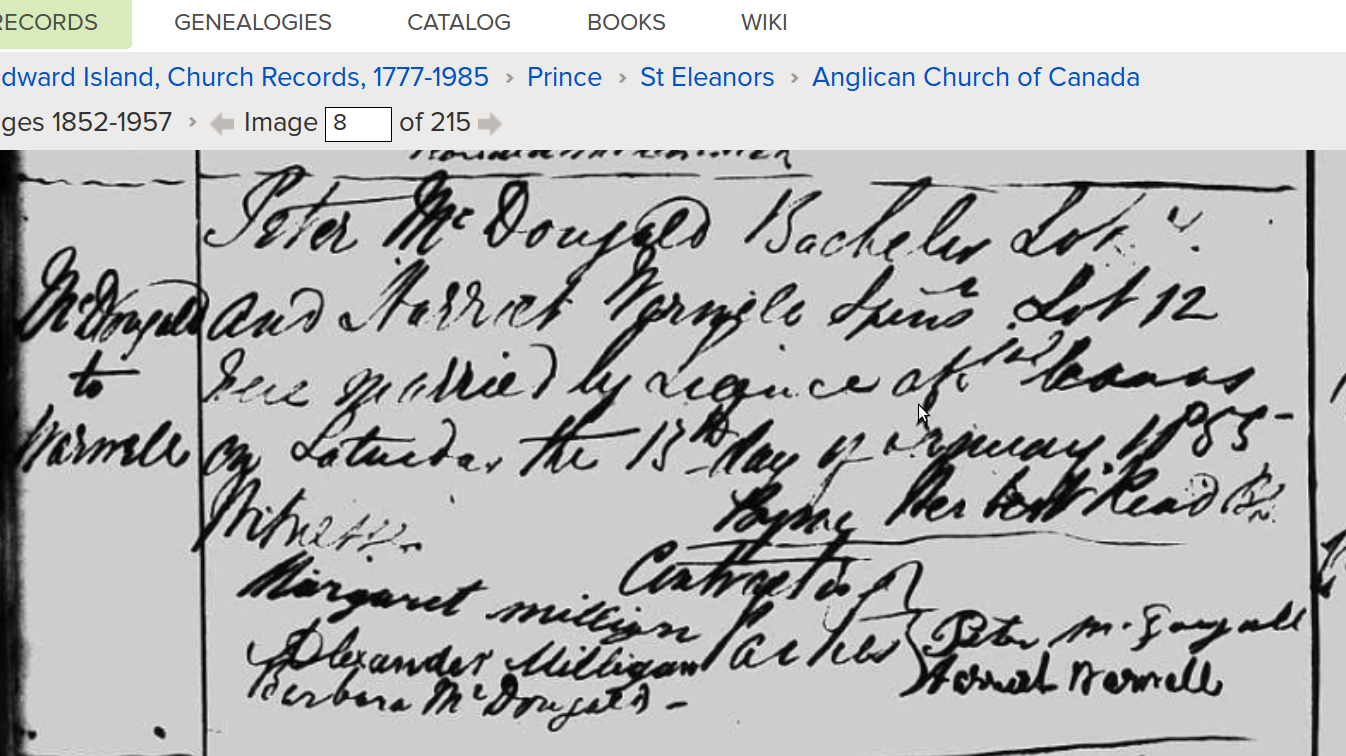 RECORDS GENEALOGIES CATALOG BOOKS WIKI
dward Island, Church Records, 1777-1985 › Prince › St Eleanors › Anglican Church of Canada
ges 1852-1957 › Image 8 of 215
Peter McDougald Bachelor Lot
McDougald
to
Warmell
and Harriet Warmele Spins Lot 12
were married by Licence at
on Saturday the 13th day of January 1855
Herbert Read
Witness
Contracting
Parties
Margaret milligan
Alexander Milligan
Barbara McDougald -
Peter Mc Dougall
Harriet Warmell